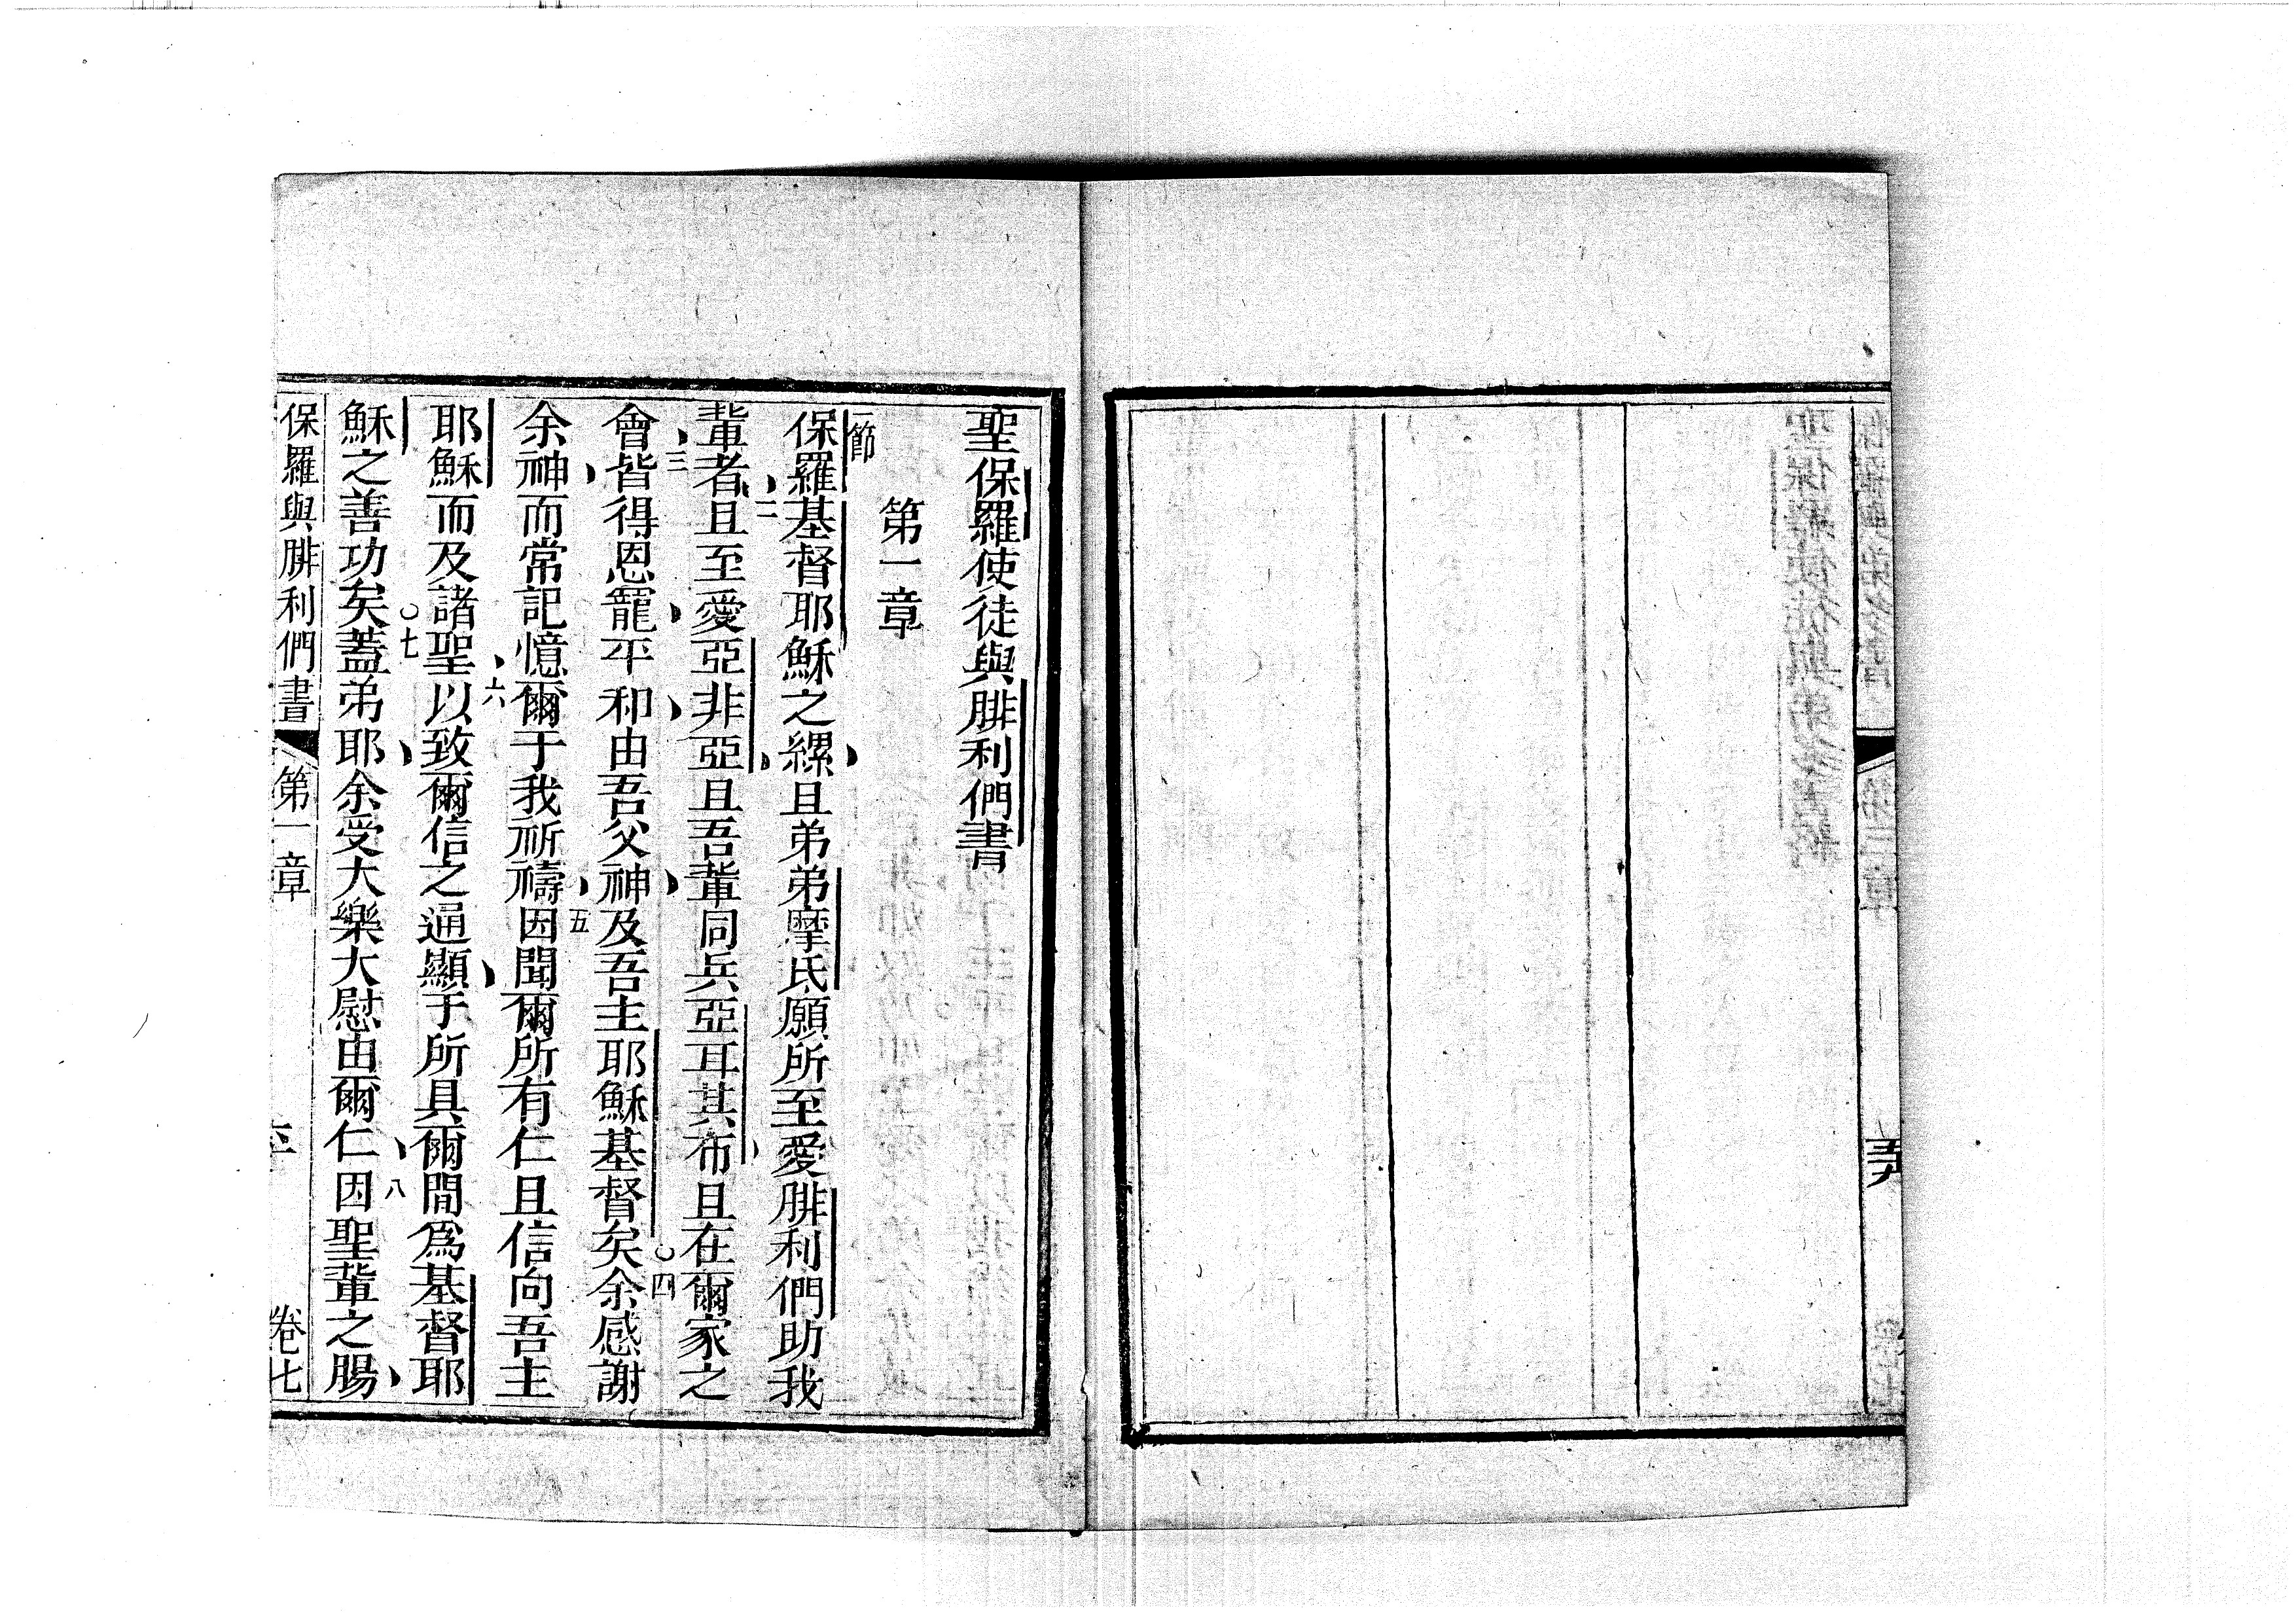 聖保羅使徒與腓利們書
第一章
一節
保羅基督耶穌之縲且弟弟摩氐願所至愛腓利們助我
二
輩者且至愛亞非亞且吾輩同兵亞耳其布且在爾家之
三
會皆得恩寵平和由吾父神及吾主耶穌基督矣○四余感謝
余神而常記憶爾于我祈禱五因聞爾所有仁且信向吾主
耶穌而及諸聖六以致爾信之通顯于所具爾間為基督耶
穌之善功矣○七蓋弟耶余受大樂大慰由爾仁八因聖輩之腸
保羅與腓利們書 第一章 卷七